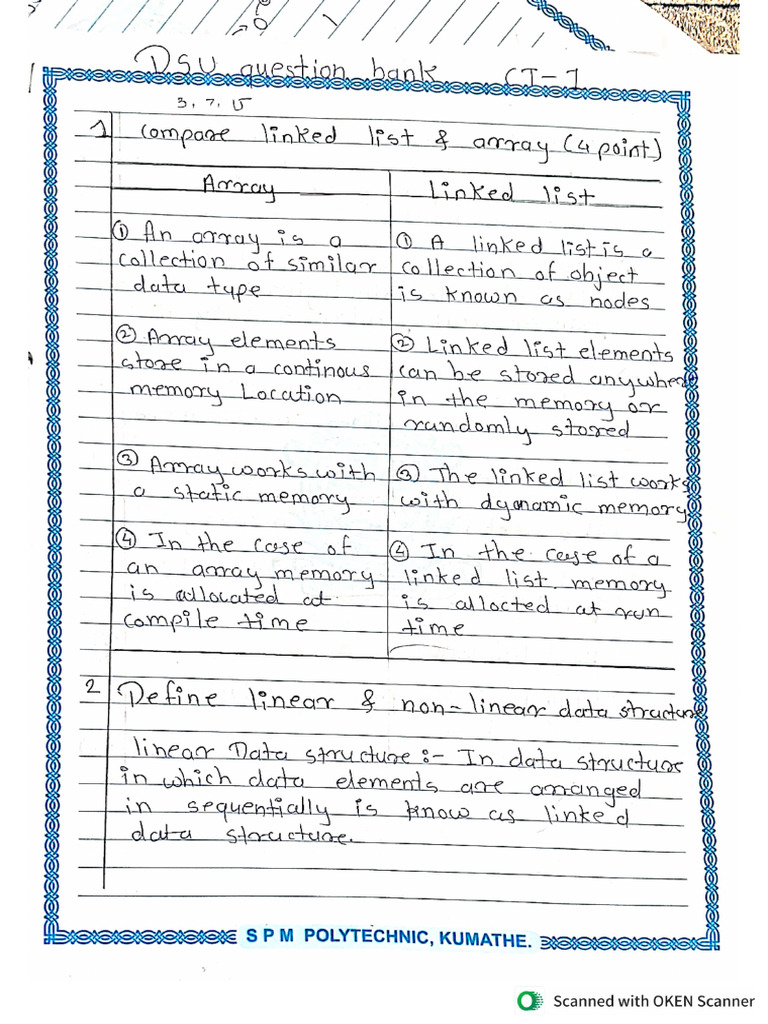 DSU question bank CT-1
3, 7, 15
1 Compare linked list & array (4 point)
Array
Linked list
① An array is a
collection of similar
data type
① A linked list is a
collection of object
is known as nodes
② Array elements
store in a continous
memory Location
② Linked list elements
can be stored anywhere
in the memory or
randomly stored
③ Array works with
a static memory
③ The linked list works
with dyanamic memory
④ In the case of
an array memory
is allocated at
compile time
④ In the case of a
linked list memory
is allocted at run
time
2 Define linear & non-linear data structure
linear Data structure :- In data structure
in which data elements are arranged
in sequentially is know as linked
data structure.
S P M POLYTECHNIC, KUMATHE.
Scanned with OKEN Scanner